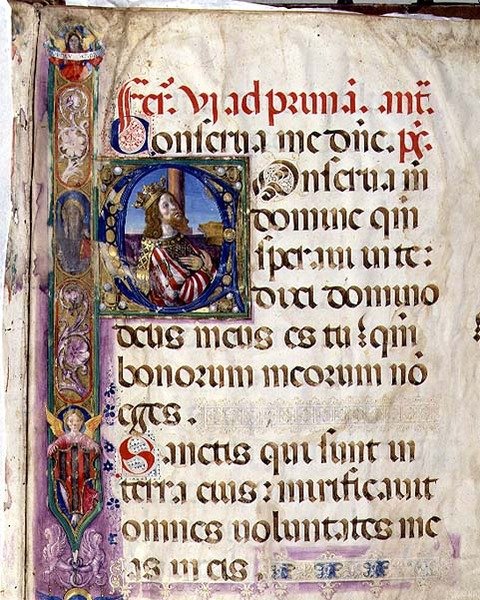 Fer̄. vj ad primā. ant̄.
Conserua me dn̄e. ps̄.
COnserua m̄
domine qm̄
speraui in te:
dixi domino
deus meus es tu : qm̄
bonorum meorum nō
eges.
Sanctis qui sunt in
terra eius : mirificauit
omnes uoluntates me
as in eis.